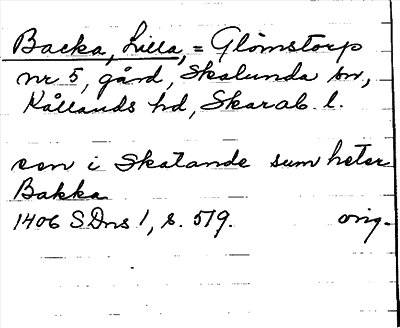 Backa, Lilla, = Glömstorp
nr 5, gård, Skalunda sn,
Kållands hd, Skarab. l.
een i Skalande sum heter
Bakka
1406 SDns 1, s. 519. orig.